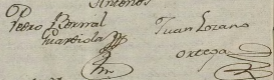 Pedro Bernal
Guardiola
Juan Lozano
Ortega